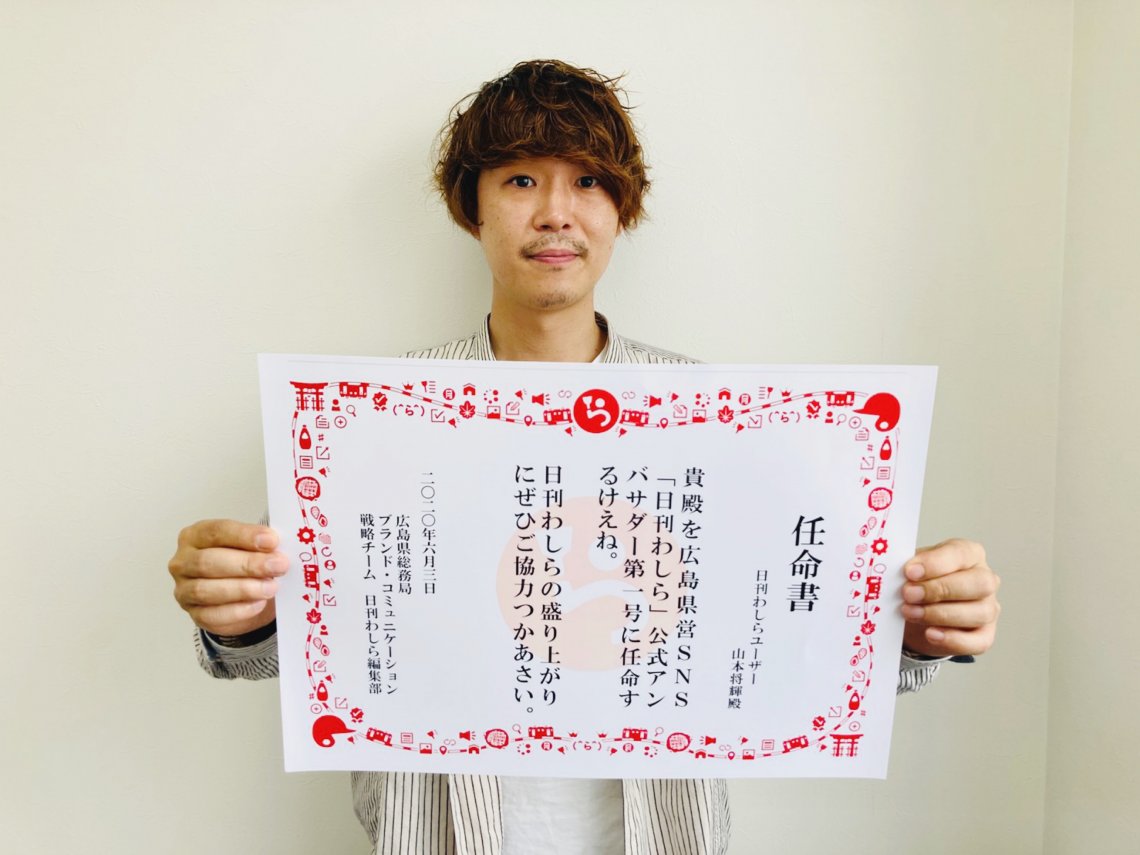 ら
任命書
日刊わしらユーザー
山本将輝殿
貴殿を広島県営SNS
「日刊わしら」公式アン
バサダー第一号に任命す
るけえね。
日刊わしらの盛り上がり
にぜひご協力つかあさい。
二〇二〇年六月三日
広島県総務局
ブランド・コミュニケーション
戦略チーム 日刊わしら編集部